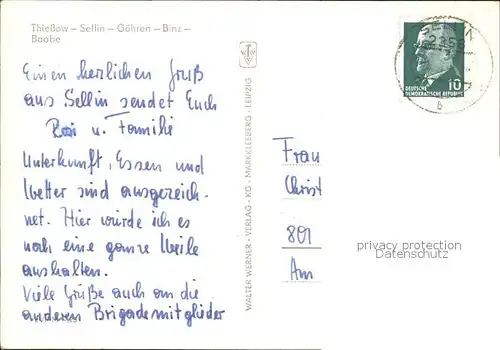 Thießow – Sellin – Göhren – Binz –
Baabe
Einen herzlichen Gruß
aus Sellin sendet Euch
u. Familie
Unterkunft, Essen und
Wetter sind ausgezeich-
net. Hier würde ich es
noch eine ganze Weile
aushalten.
Viele Grüße auch an die
anderen Brigademitglieder
WALTER WERNER - VERLAG - KG - MARKKLEEBERG - LEIPZIG
SELLIN
b
DEUTSCHE
DEMOKRATISCHE REPUBLIK
10
Frau
Christ
801
Am
privacy protection
Datenschutz